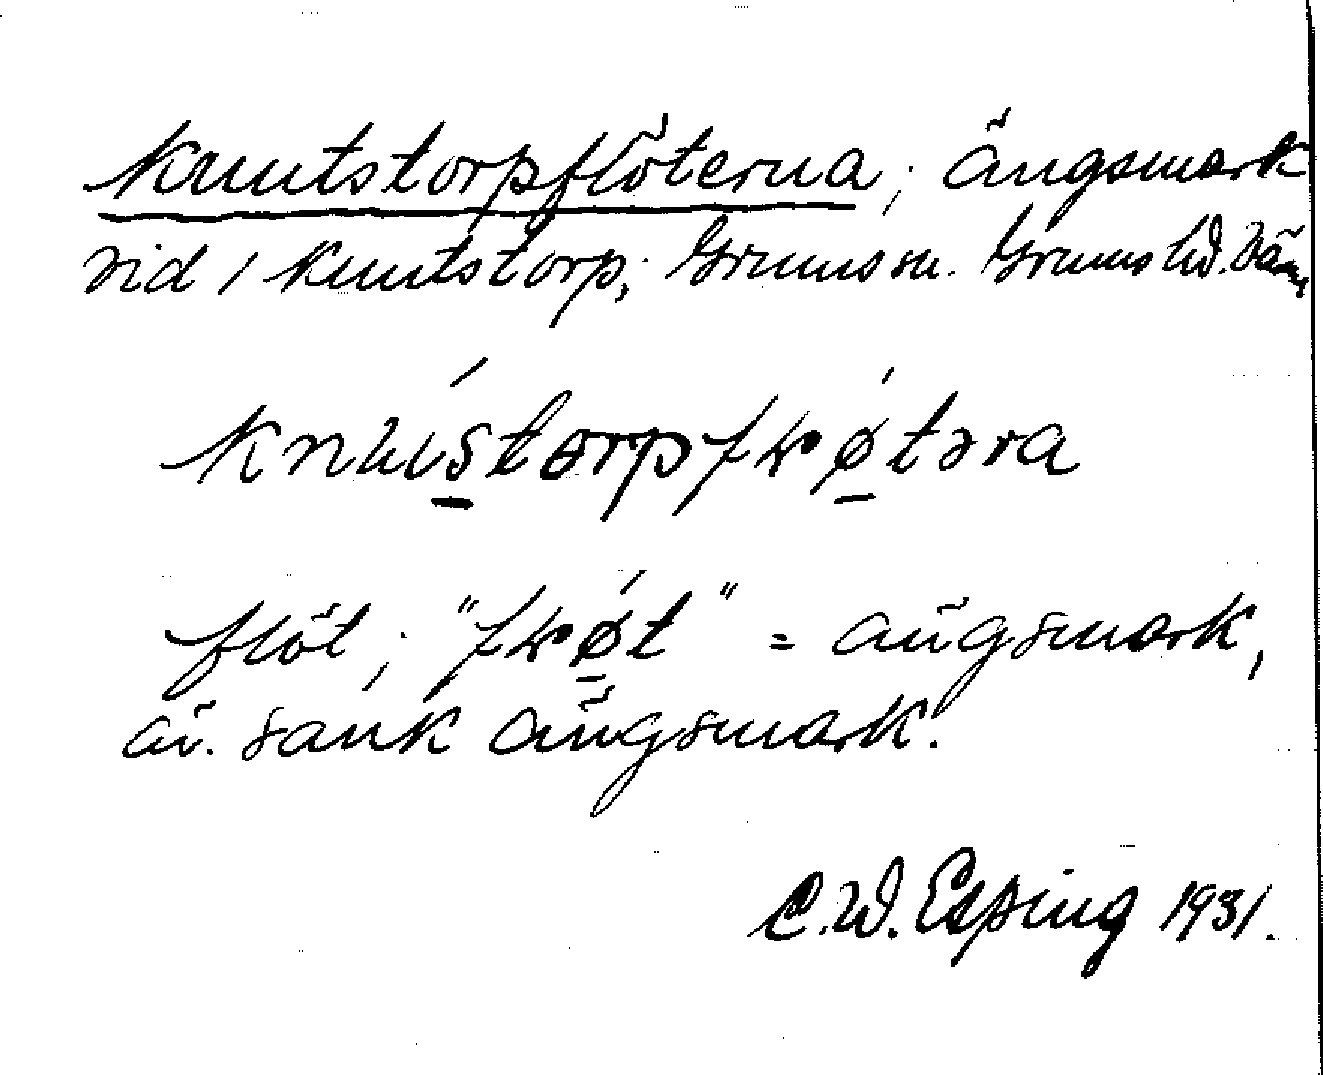 Knutstorpflöterna; ängsmark
vid / Knutstorp, Grums sn. Grums hd. Värm,
knuıstorpfɫøtəra
flöt; "fɫøt" = ängsmark,
äv. sank ängsmark.
C.W. Esping 1931.